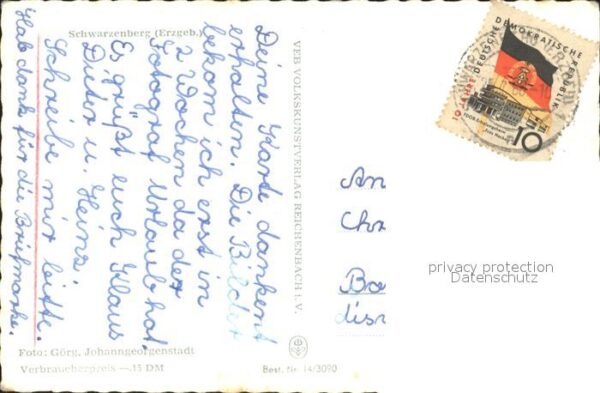 Schwarzenberg (Erzgeb.)
Deine Karte dankent
erhalten. Die Bilder
bekom ich erst in
2 Wochen da der
Fotograf Urlaub hat.
Es grüßt euch Klaus
Dieter u. Heinz.
Schreibe mir bitte.
Hab dank für die Briefmarke.
Foto: Görg, Johanngeorgenstadt
Verbraucherpreis —.15 DM
VEB VOLKSKUNSTVERLAG REICHENBACH i. V.
Best. Nr. 14/3090
10 JAHRE DEUTSCHE DEMOKRATISCHE REPUBLIK
10
An
privacy protection
Datenschutz